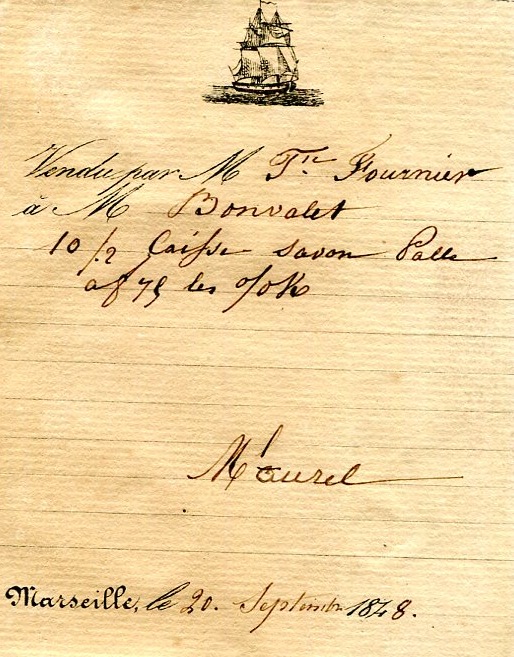 Vendu par M Tn Fournier
à M Bonvalet
10/2 Caisse savon Palle
a f 75 les %K
Maurel
Marseille, le 20. Septembre 1848.